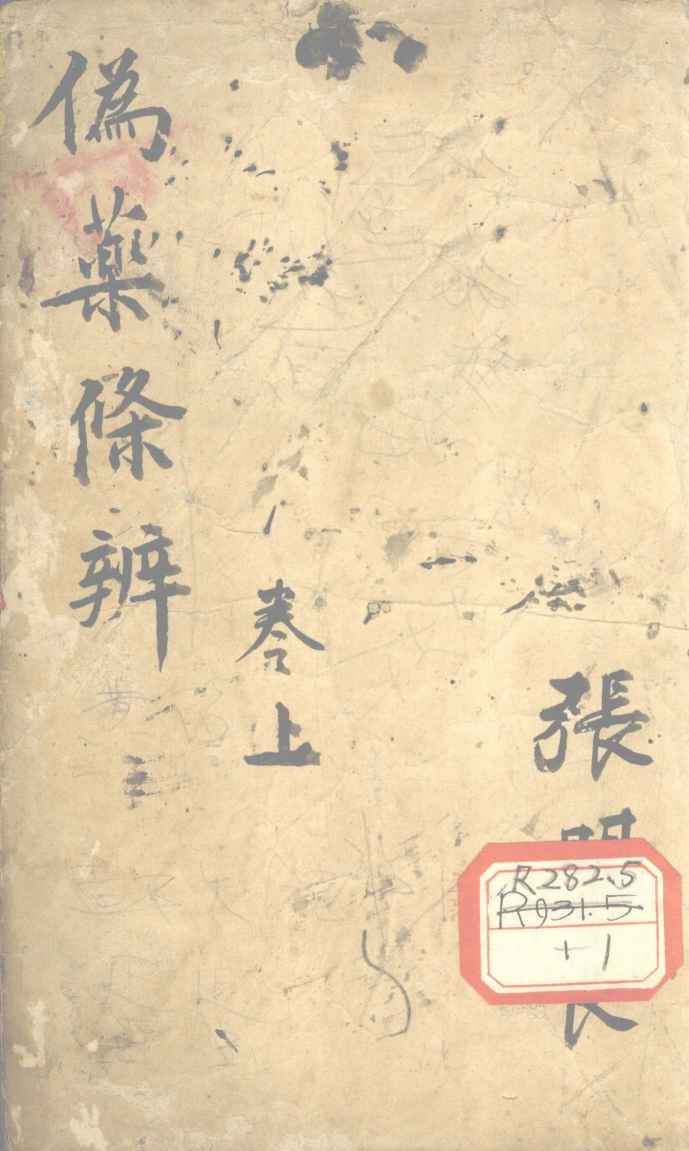 偽藥條辨
卷上
張
R282.5
R931.5
+1